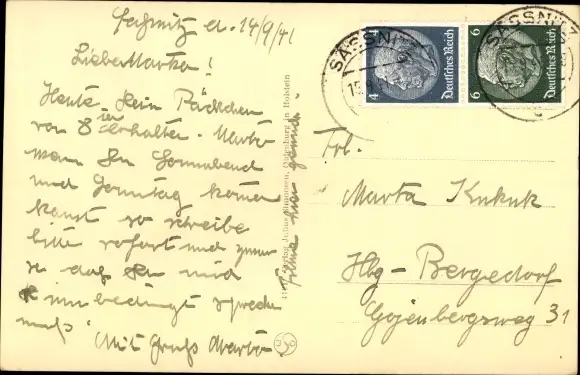 Saßnitz d. 14/9/41
Liebe Marta!
Heute Dein Päckchen
von 8ten erhalten. Marta
wann Du Sonnabend
und Sonntag kommen
kannst so schreibe
bitte sofort und
so daß Du mich
unbedingt sprechen
mußt
Mit Gruß Martin
Verlag Julius Simonsen, Oldenburg in Holstein
SASSNITZ
4
Deutsches Reich
4
6
Deutsches Reich
6
SASSNITZ
Frl.
Marta Kukuk
Hbg-Bergedorf
Gojenbergsweg 31